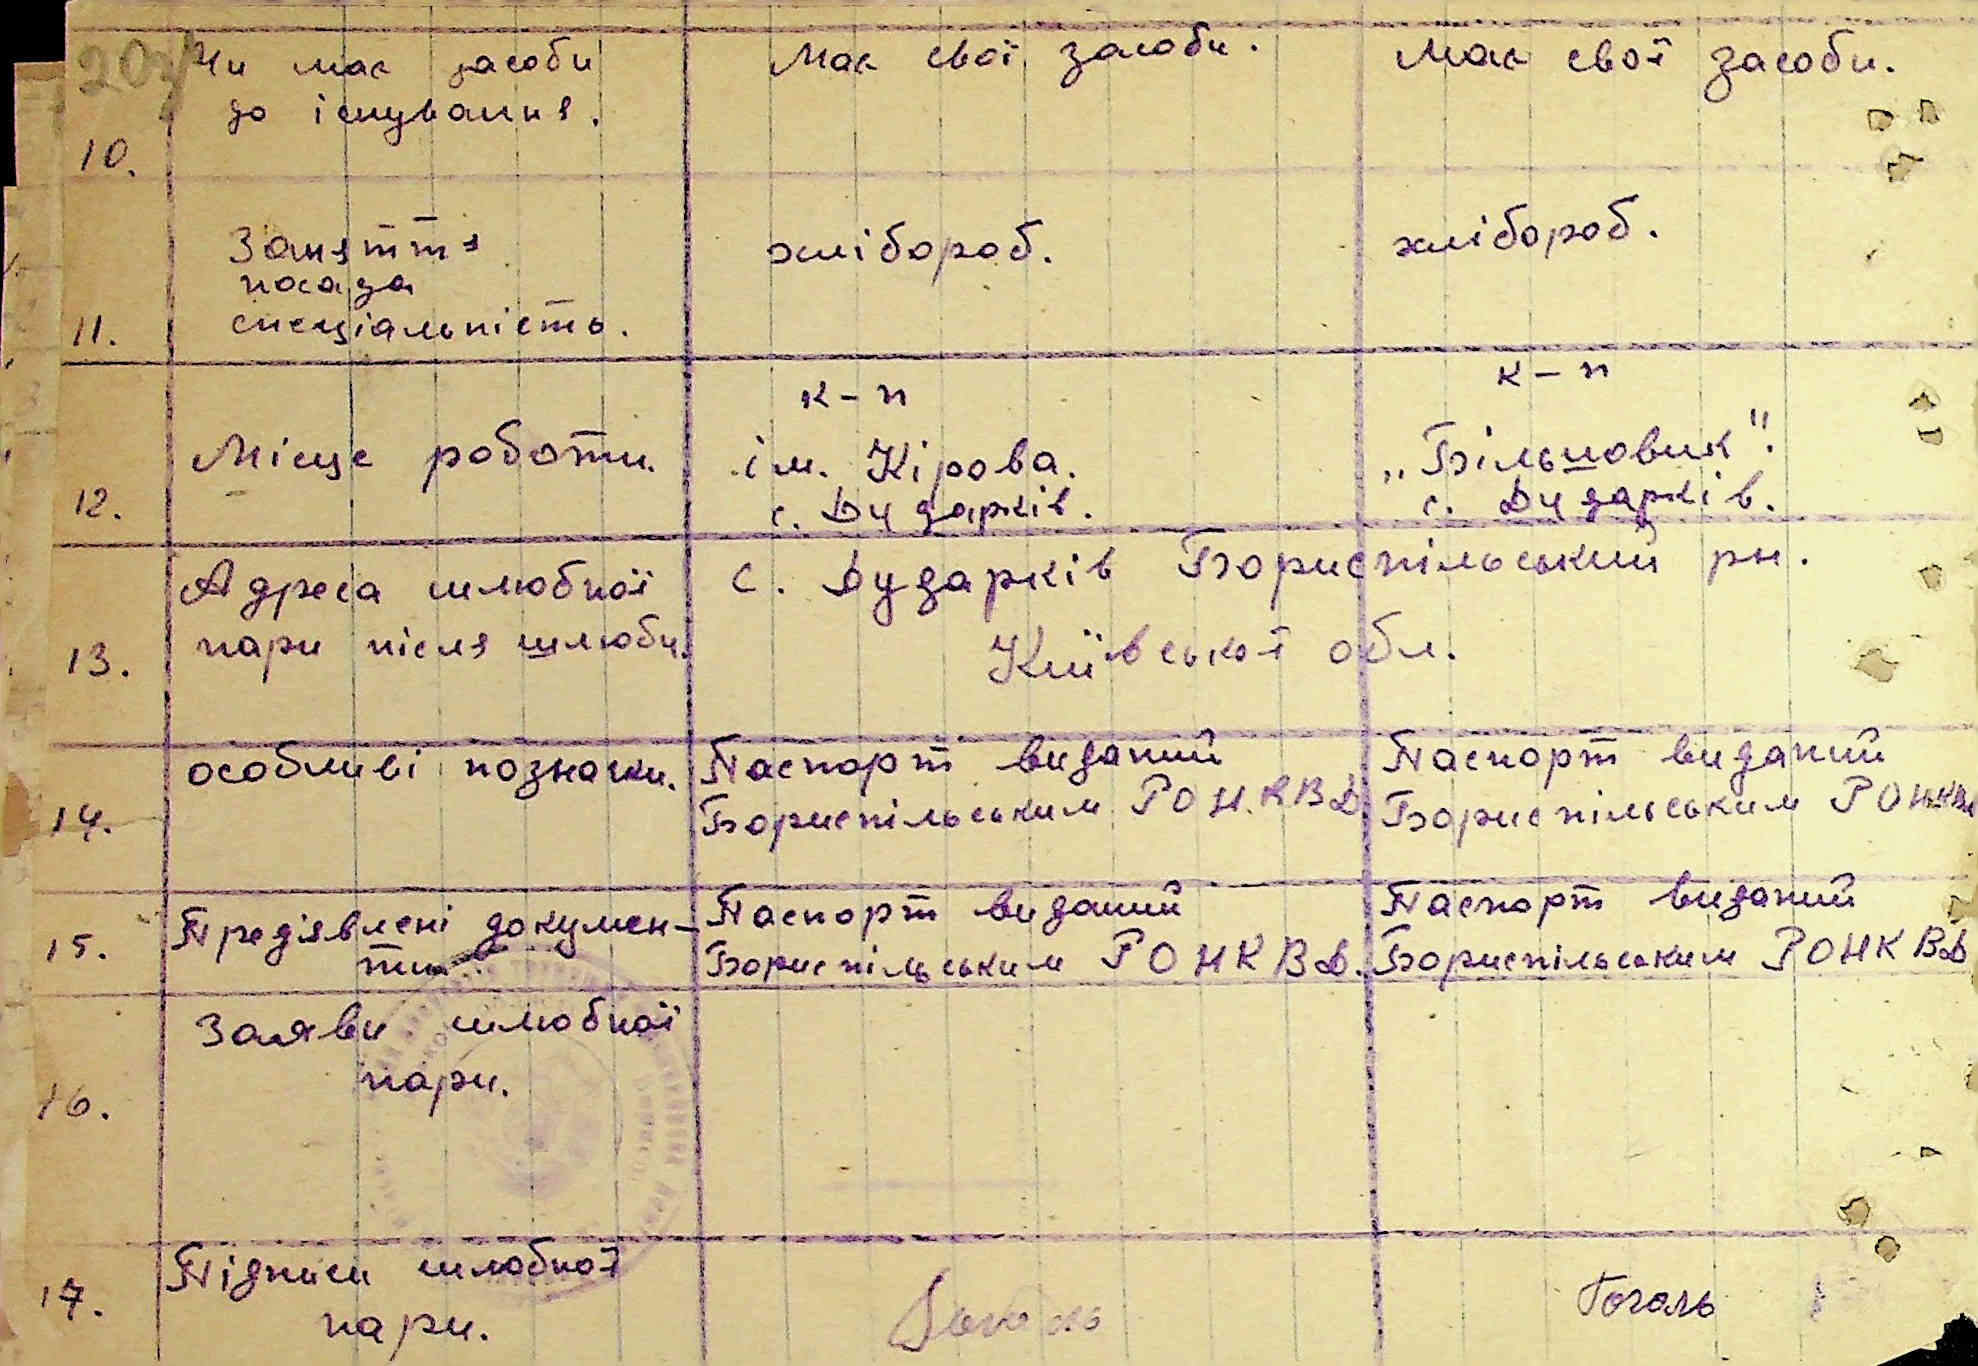 20
Чи має засоби
до існування.
Має свої засоби.
Має свої засоби.
10.
Заняття
посада
спеціальність.
хлібороб.
хлібороб.
11.
к-п
к-п
Місце роботи.
ім. Кірова.
„Більшовик".
12.
с. Дударків.
с. Дударків.
Адреса шлюбної
с. Дударків Бориспільський рн.
13.
пари після шлюбу.
Київської обл.
особливі позначки.
Паспорт виданий
Паспорт виданий
14.
Бориспільським РОН.КВД.
Бориспільським РОНКВД
15.
Предіявлені докумен-
ти
Паспорт виданий
Бориспільським РОНКВД.
Паспорт виданий
Бориспільським РОНКВД
Заяви шлюбної
16.
пари.
17.
Підписи шлюбної
пари.
Гоголь